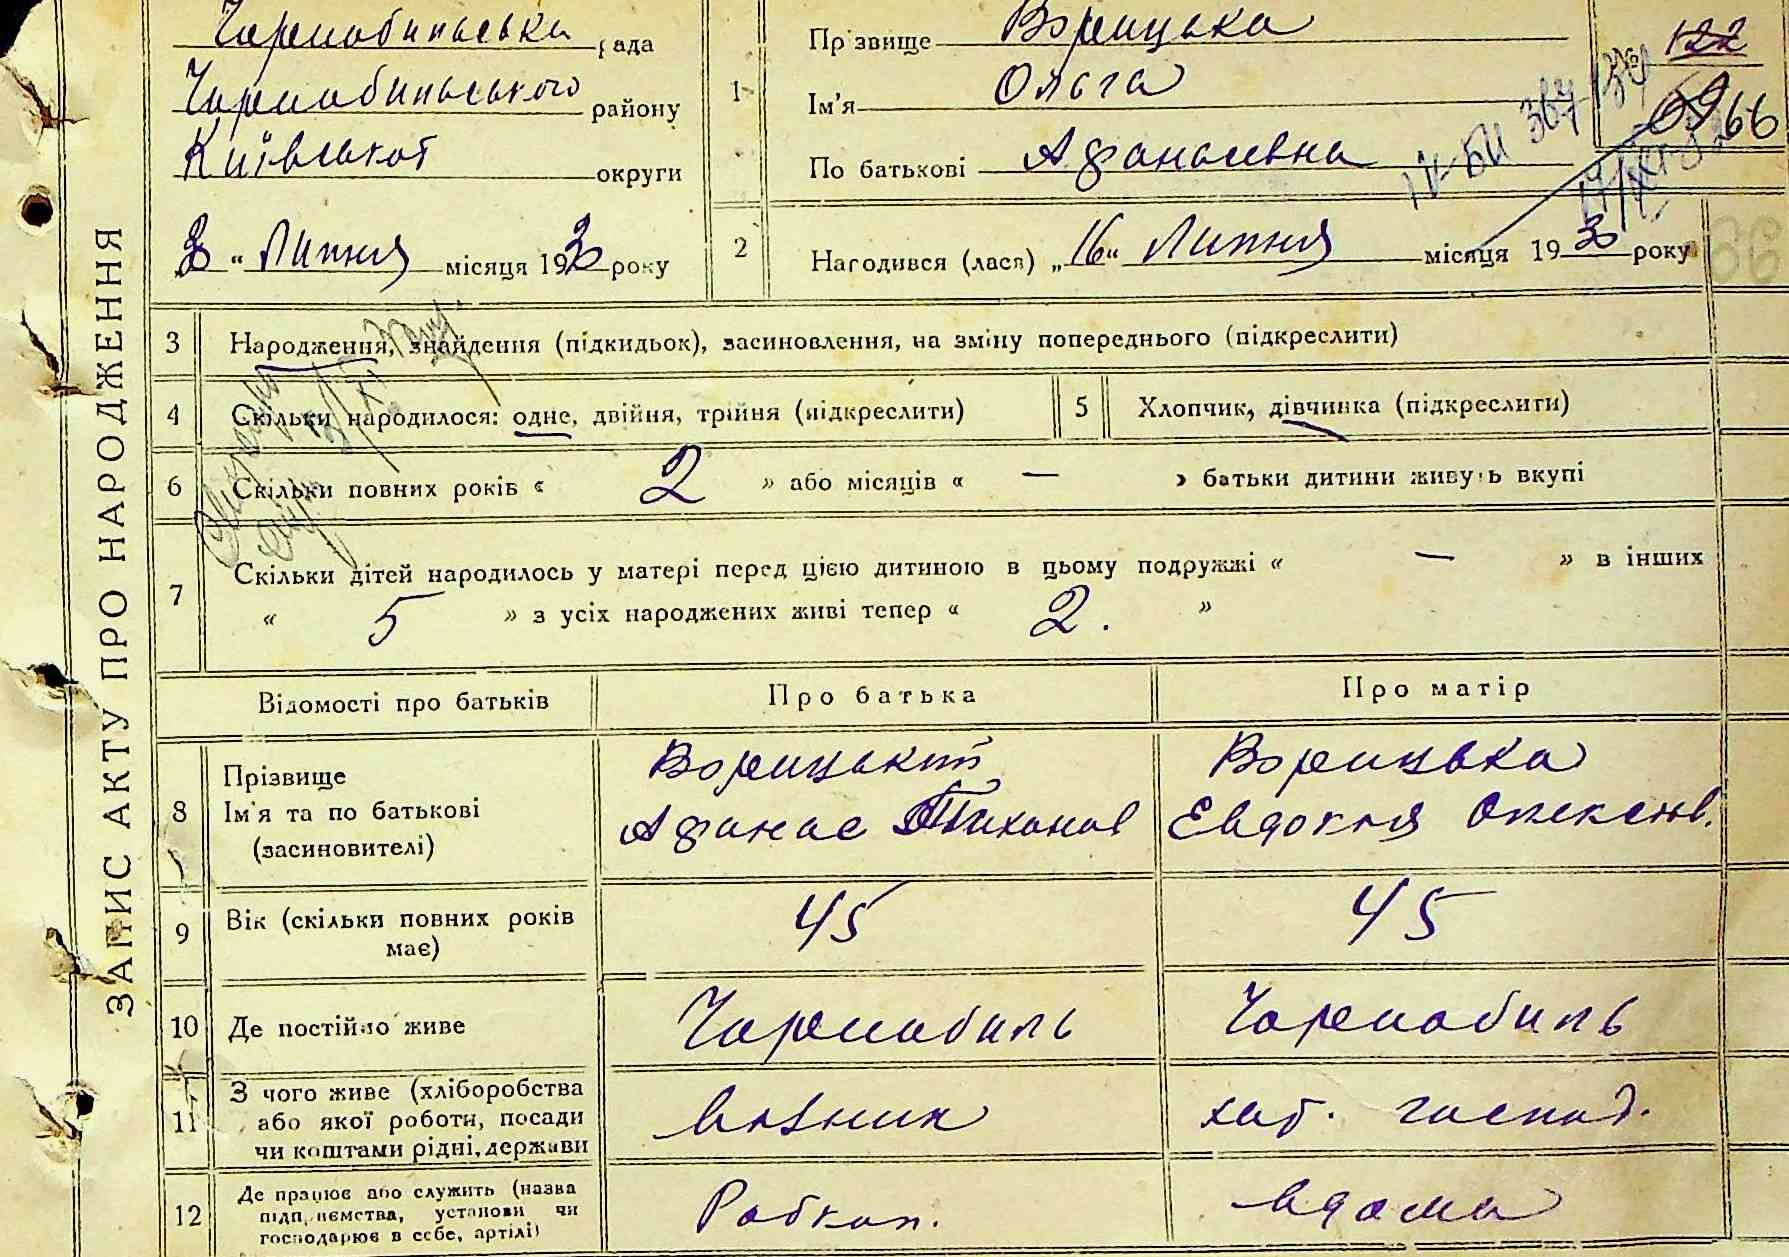 Чорнобильська рада
Чорнобильського району
Київської округи
30 " Липня місяця 1930 року
1 Прізвище Ворицька
Ім'я Ольга
По батькові Афанасевна
№ 122
66
2 Народився (лася) „16" Липня місяця 1930 року
66
ЗАПИС АКТУ ПРО НАРОДЖЕННЯ
3 Народження, знайдення (підкидьок), засиновлення, на зміну попереднього (підкреслити)
4 Скільки народилося: одне, двійня, трійня (підкреслити) 5 Хлопчик, дівчинка (підкреслити)
6 Скільки повних років « 2 » або місяців « — » батьки дитини живуть вкупі
7 Скільки дітей народилось у матері перед цією дитиною в цьому подружжі « — » в інших
« 5 » з усіх народжених живі тепер « 2. »
Відомості про батьків Про батька Про матір
8 Прізвище Ворицький Ворицька
Ім'я та по батькові Афанас Тихонов Евдокия Олексієв.
(засиновителі)
9 Вік (скільки повних років має) 45 45
10 Де постійно живе Чорнобиль Чорнобиль
11 З чого живе (хліборобства
або якої роботи, посади візник хат. господ.
чи коштами рідні, держави
12 Де працює або служить (назва
підприємства, установи чи Робкоп. вдома
господарює в себе, артілі)